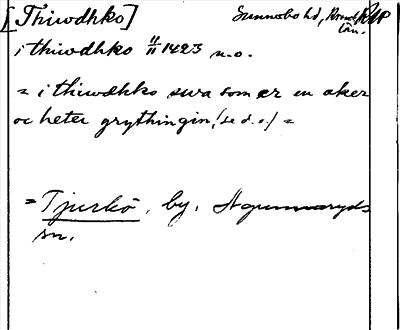 [Thiwdhko] Sunnerbo hd, Kronob. RAP
län.
i thiwdhko 11/11 1423 n.o.
= i thiwdhko swa som er en aker
oc heter grythingin, (se d.o.) =
= Tjurkö, by, Agunnaryds
sn.